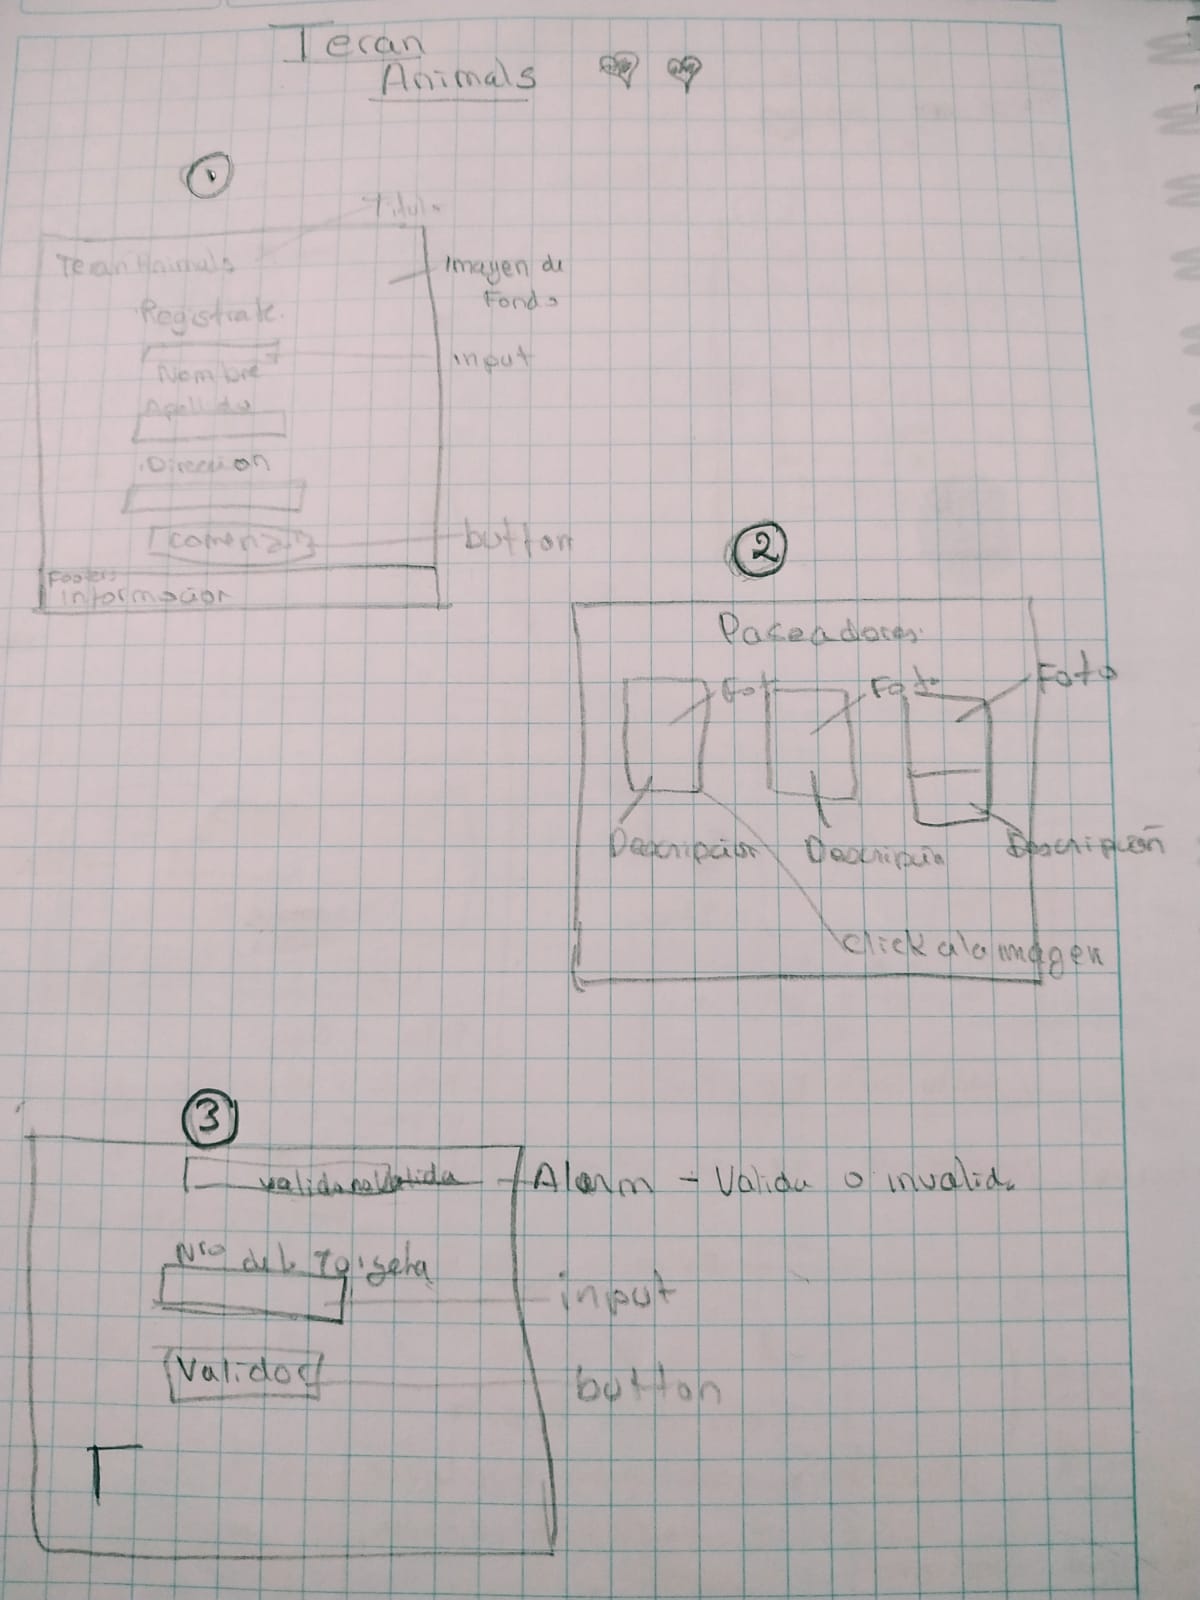 Teran
Animals
1
Titulo
Teran Animals
Imagen de
Fondo
Registrate.
input
Nombre
Apellido
Direccion
comenzar
button
Footers
información
2
Paseadores.
Foto
Foto
Foto
Descripción
Descripción
Descripción
click a la imagen
3
Alarm - Valida o invalida
Nro de la Tarjeta
input
Validar
button